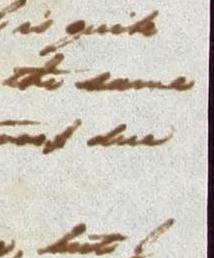 is quite
the same
due
but I